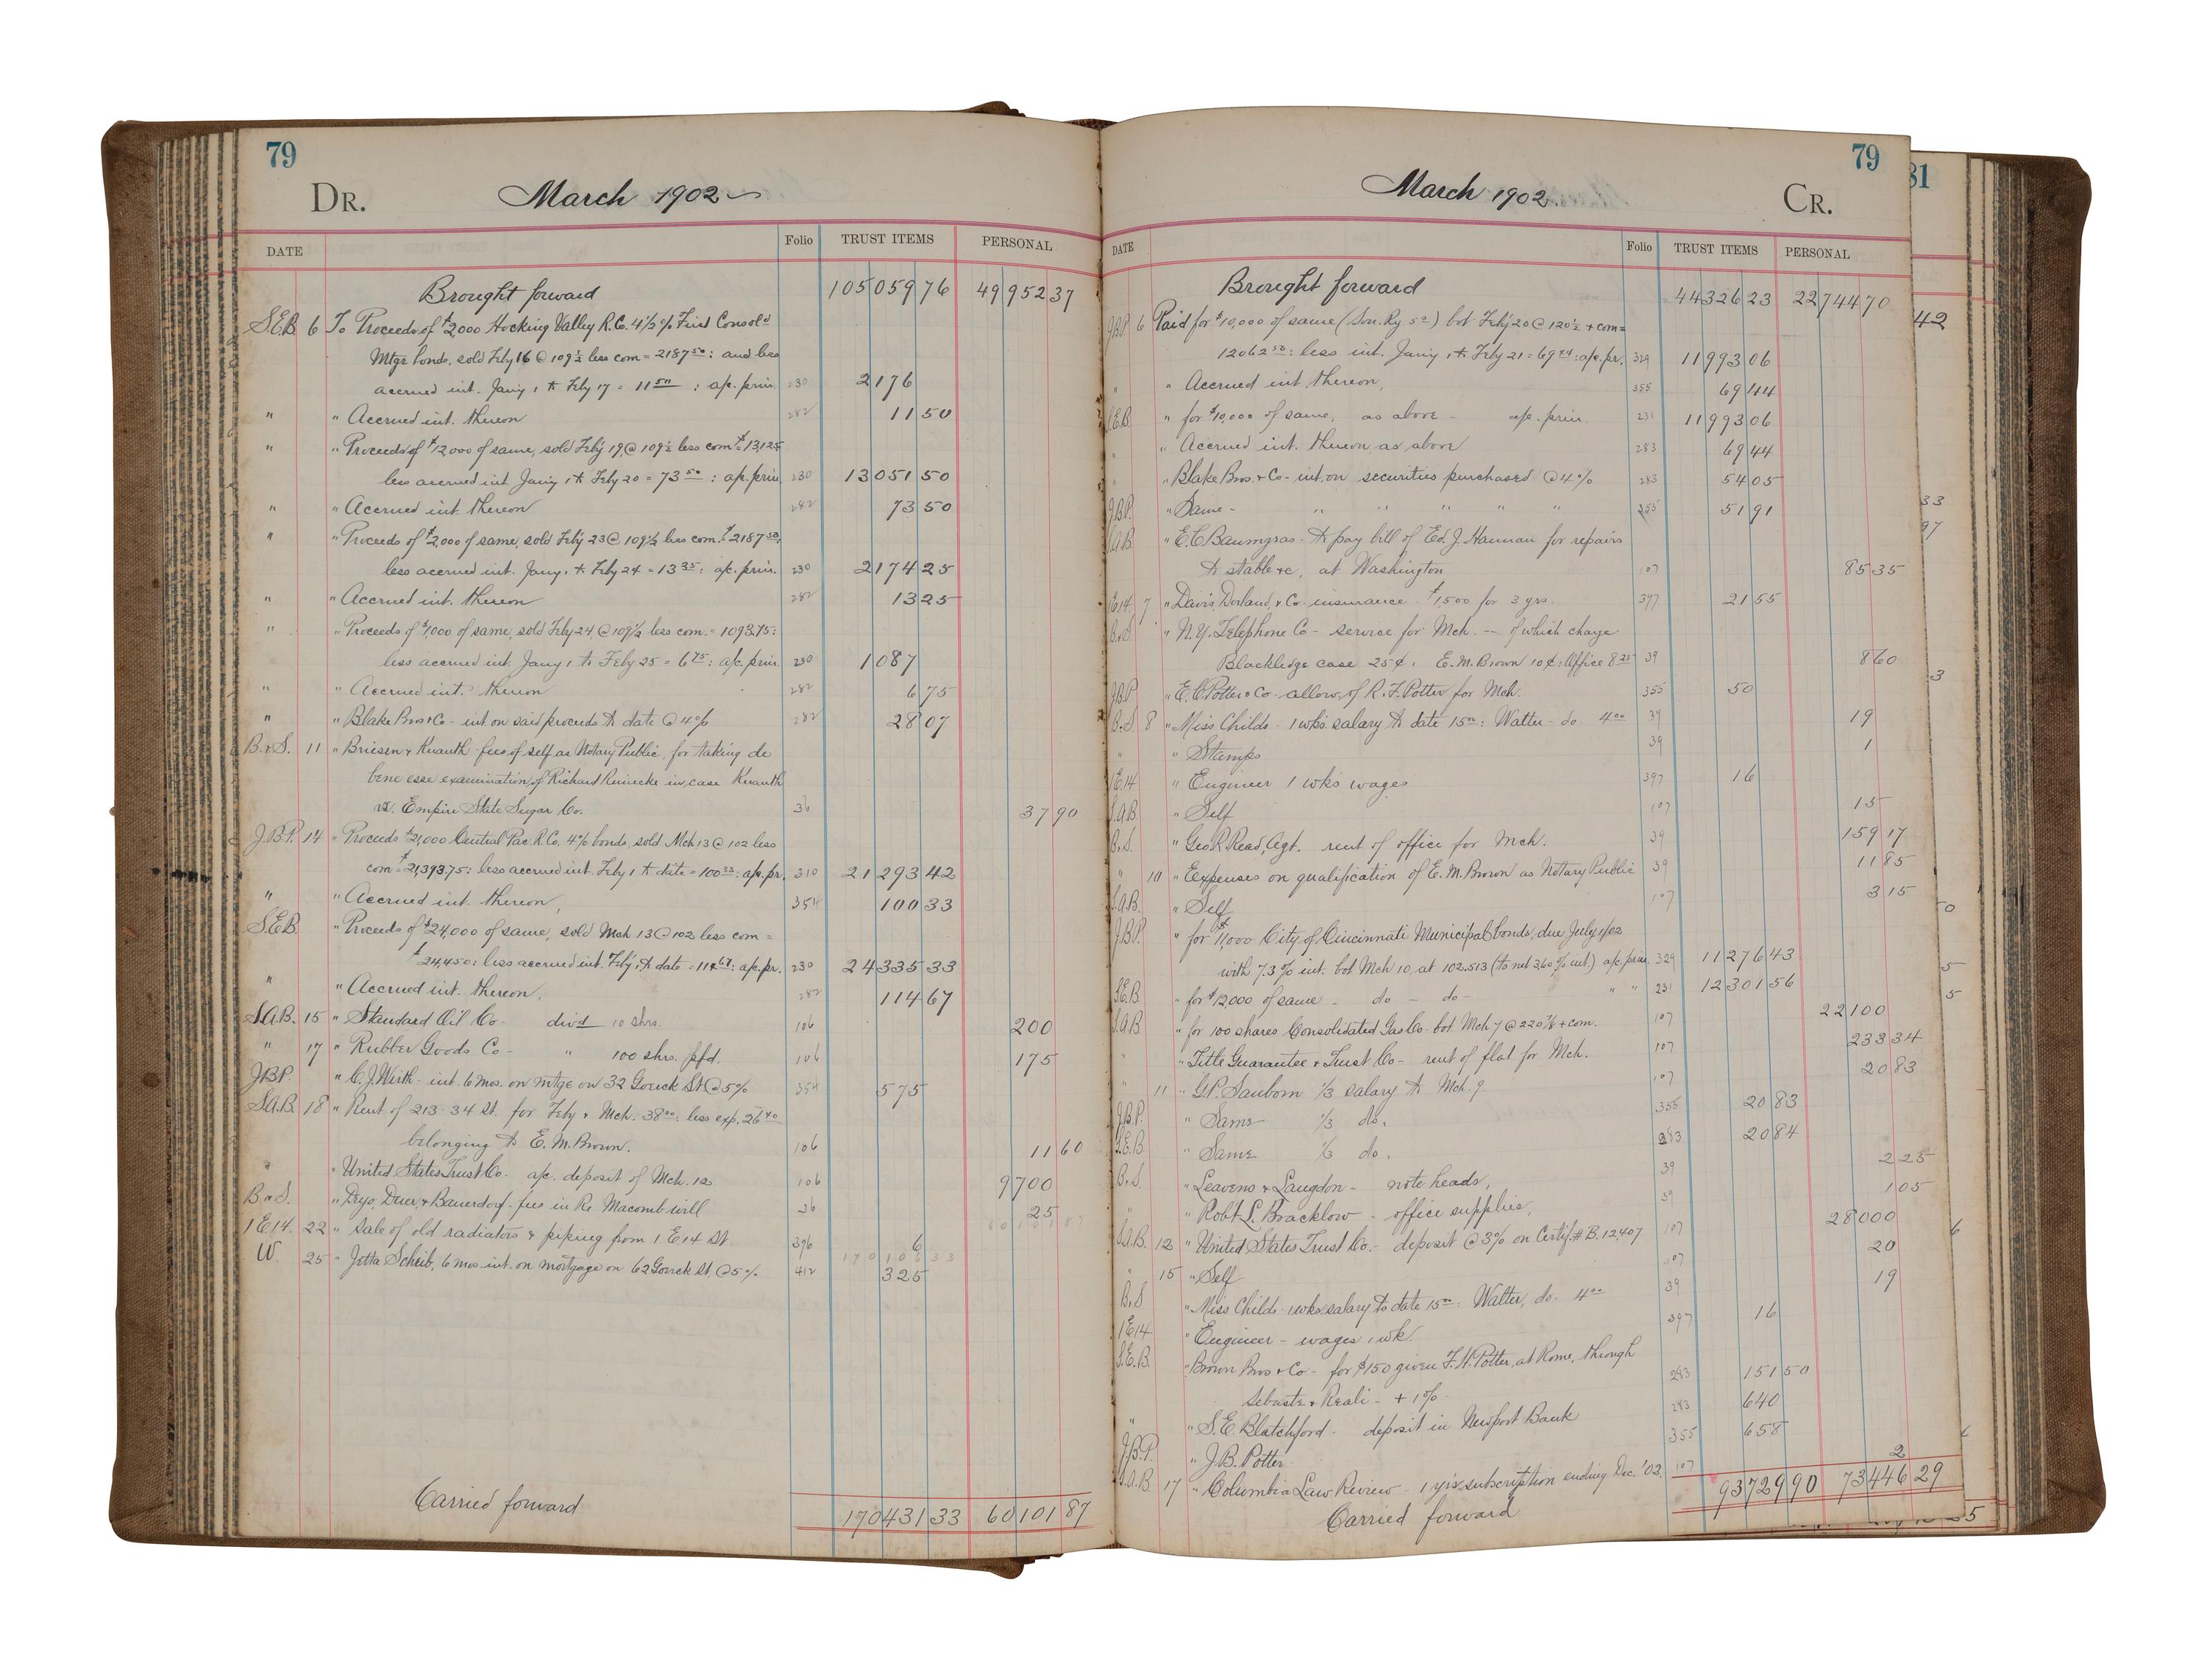 79
DR. March 1902
DATE Folio TRUST ITEMS PERSONAL
Brought forward 105059 76 49952 37
S.E.B. 6 To Proceeds of $2,000 Hocking Valley R.C. 4½% First Consold
Mtge bonds, sold Feby 16 @ 109½ less com = 2187 50: and less
accrued int. Jany 1 to Feby 17 = 11 50 : a/c. prin. 230 2176
" " Accrued int. thereon 282 11 50
" " Proceeds of $12,000 of same, sold Feby 19, @ 109½ less com $13,125
less accrued int Jany 1 to Feby 20 = 73 50 : a/c. prin 230 13051 50
" " Accrued int. thereon 282 73 50
" " Proceeds of $2,000 of same, sold Feby 23 @ 109½ less com. $2187 50:
less accrued int. Jany 1 to Feby 24 = 13 25: a/c. prin. 230 2174 25
" " Accrued int. thereon 282 13 25
" " Proceeds of $1,000 of same, sold Feby 24, @ 109½ less com. = 1093.75:
less accrued int. Jany 1 to Feby 25 = 6 75: a/c. prin 230 1087
" " Accrued int. thereon 282 6 75
" " Blake Bros & Co - int. on said proceeds to date @ 4% 282 28 07
B. & S. 11 " Briesen & Knauth - fees of self as Notary Public, for taking de
bene esse examination of Richard Reinecke in case Knauth
vs. Empire State Sugar Co. 36 37 90
J.B.P. 14 " Proceeds $21,000 Central Pac. R.Co. 4% bonds, sold Mch 13 @ 102 less
com = $21,393.75: less accrued int. Feby 1 to date = 100 33: a/c. pr. 310 21293 42
" " Accrued int. thereon, 354 100 33
S.E.B. " Proceeds of $24,000 of same, sold Mch 13 @ 102 less com =
$24,450: less accrued int. Feby 1 to date = 114 67: a/c. pr. 230 24335 33
" " Accrued int. thereon. 282 114 67
S.A.B. 15 " Standard Oil Co - divd 10 shrs. 106 200
" 17 " Rubber Goods Co - " 100 shrs. pfd. 106 175
J.B.P. " C. J. Wirth - int. 6 mos. on mtge on 32 Goerck St @ 5% 354 575
S.A.B. 18 " Rent of 213 - 34 St. for Feby & Mch. 38 00: less exp. 26 40
belonging to E. M. Brown. 106 11 60
" " United States Trust Co - a/c. deposit of Mch. 12 106 9700
B. & S. " Deyo, Duer, & Bauerdorf - fees in Re Macomb will 36 25
1 E 14. 22 " Sale of old radiators & piping from 1 E 14 St. 396 6
W. 25 " Jetta Scheib, 6 mos. int. on mortgage on 62 Goerck St. @ 5% 412 325
Carried forward 170431 33 60101 87
79
March 1902. CR.
DATE Folio TRUST ITEMS PERSONAL
Brought forward 44326 23 22744 70
J.B.P. 6 Paid for $10,000 of same (Son. Ry. 5s) bot Feby 20 @ 120½ + com =
12062 50: less int. Jany 1 to Feby 21 = 69 44: a/c. pr. 329 11993 06
" " Accrued int. thereon, 355 69 44
S.E.B. " for $10,000 of same, as above - a/c. prin. 231 11993 06
" " Accrued int. thereon as above 283 69 44
" " Blake Bros. & Co - int. on securities purchased @ 4% 283 54 05
J.B.P. " Same - " " " " " 355 51 91
S.A.B. " E. C. Baumgras - to pay bill of Ed. J. Hannan for repairs
to stable &c, at Washington 107 85 35
1 E 14 7 " Davis, Dorland, & Co - insurance $1,500 for 3 yrs. 397 21 55
B. & S " N.Y. Telephone Co - service for Mch. - of which charge
Blackledge case 25¢, E. M. Brown 10¢: Office 8 25 39 8 60
J.B.P " E. C. Potter & Co - allow. of R. F. Potter for Mch. 355 50
B. & S 8 " Miss Childs - 1 wk's salary to date 15 00: Walter - do. 4 00 39 19
" " Stamps 39 1
1 E 14 " Engineer 1 wk's wages 397 16
S.A.B " Self 107 15
B. & S. " Geo. R. Read, Agt. rent of office for Mch. 39 159 17
" 10 " Expenses on qualification of E. M. Brown as Notary Public 39 11 85
S.A.B. " Self 107 3 15
J.B.P. " for $11,000 City of Cincinnati Municipal bonds, due July 1/02
with 7.3% int. bot Mch 10, at 102.513 (to net 3.60% int.) a/c prin 329 11276 43
S.E.B. " for $12,000 of same - do - do - " " 231 12301 56
S.A.B " for 100 shares Consolidated Gas Co - bot. Mch 7 @ 220⅞ + com. 107 22100
" " Title Guarantee & Trust Co - rent of flat for Mch. 107 233 34
" 11 " G.P. Sanborn ⅓ salary to Mch. 9 107 20 83
J.B.P. " Same ⅓ do. 355 20 83
S.E.B. " Same ⅓ do. 283 20 84
B. & S. " Leavens & Langdon - note heads, 39 2 25
" " Robt. L. Bracklow - office supplies, 39 1 05
S.A.B. 12 " United States Trust Co. - deposit @ 3% on Certif. # B. 12,407 107 28000
" 15 " Self 107 20
B. & S " Miss Childs - 1 wks salary to date 15 00: Walter, do. 4 00 39 19
1 E 14 " Engineer - wages 1 wk. 397 16
S.E.B. " Brown Bros & Co - for $150 given F. H. Potter, at Rome, through
Sebasti & Reali - + 1% 283 151 50
" " S. E. Blatchford - deposit in Newport Bank 283 640
J.B.P. " J. B. Potter 355 658
S.A.B. 17 " Columbia Law Review - 1 yr's subscription ending Dec. '02. 107 2
Carried forward 93729 90 73446 29
81
42
33
97